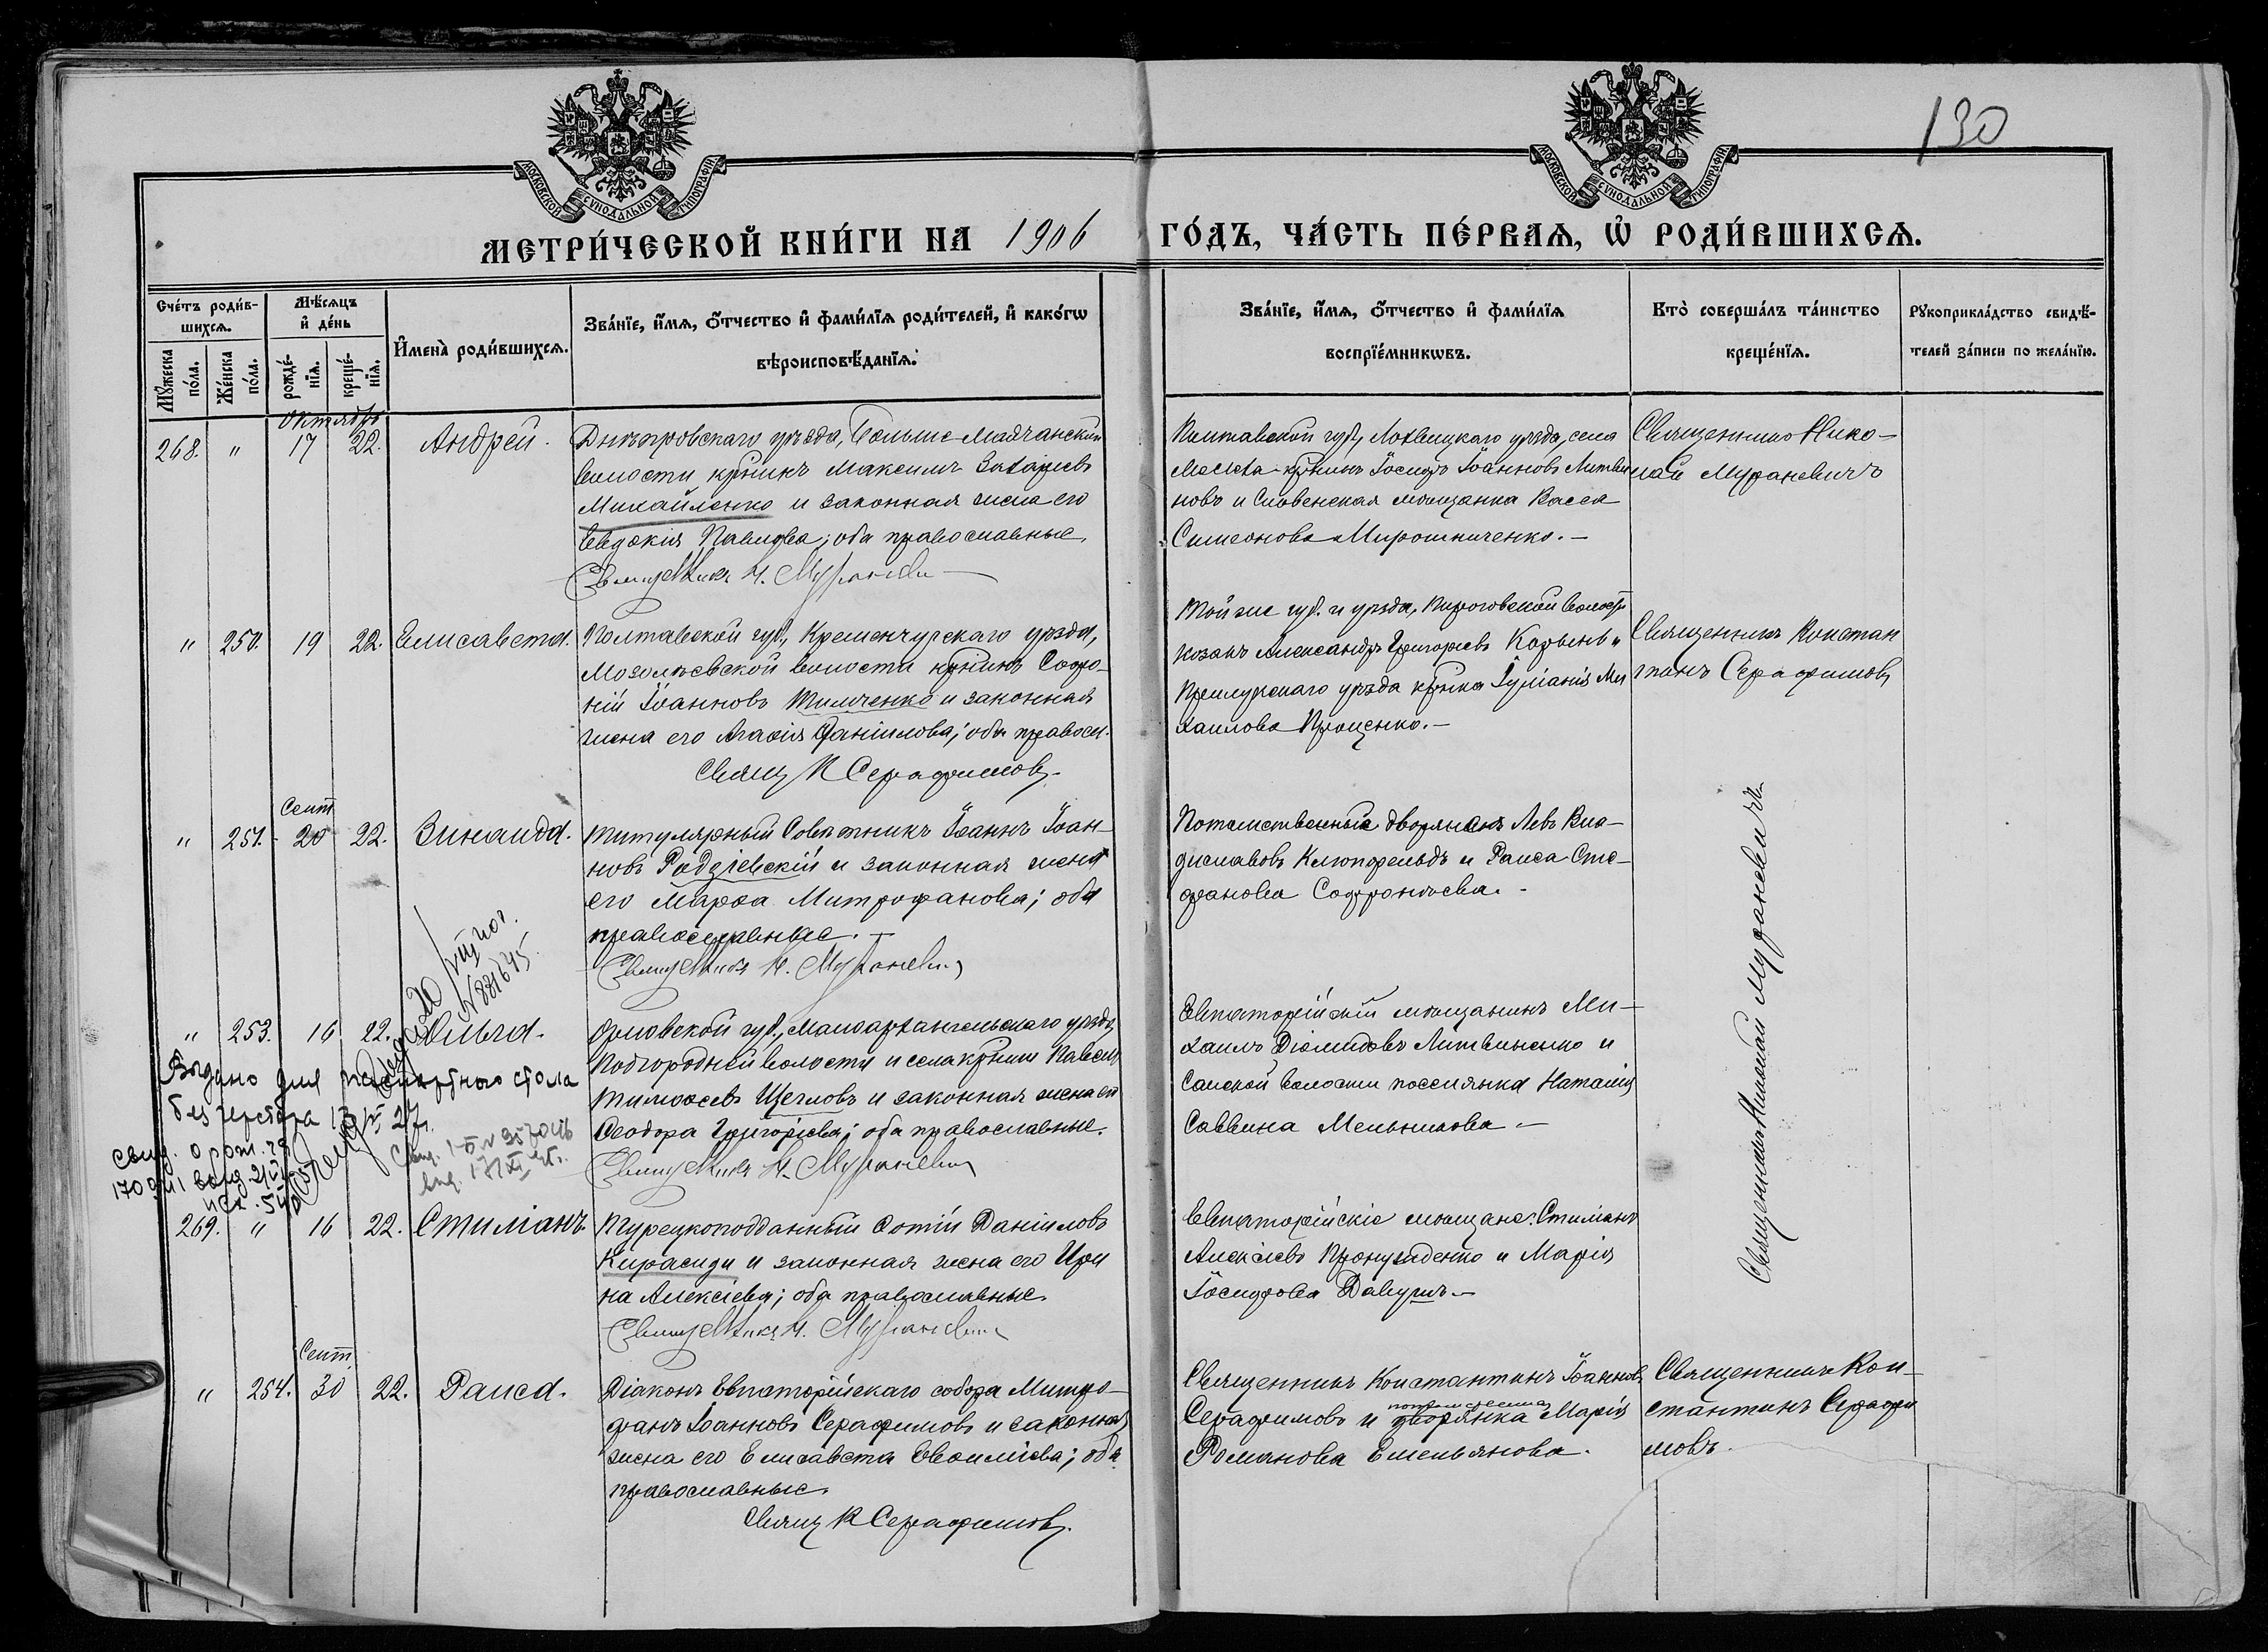 130
МОСКОВСКОЙ СУНОДАЛЬНОЙ ТИПОГРАФІИ
МОСКОВСКОЙ СУНОДАЛЬНОЙ ТИПОГРАФІИ
МЕТРИ́ЧЕСКОЙ КНИ́ГИ НА 1906 ГО́ДЪ, ЧА́СТЬ ПЕ́РВАѦ, Ѡ҆ РОДИ́ВШИХСѦ.
Сче́тъ роди́в-
шихсѧ.
Мꙋ́жеска по́ла.
Же́нска по́ла.
Мѣ́сѧцъ
и҆ де́нь
рожде́-
нїѧ.
креще́-
нїѧ.
И҆мена̀ роди́вшихсѧ.
Зва́нїе, и҆́мѧ, ѻ҆́тчество и҆ фами́лїѧ роди́телей, и҆ како́гѡ
вѣроисповѣ́данїѧ.
Зва́нїе, и҆́мѧ, ѻ҆́тчество и҆ фами́лїѧ
воспрїе́мникѡвъ.
Кто̀ соверша́лъ та́инство
креще́нїѧ.
Рꙋкоприкла́дство свидѣ́-
телей за́писи по жела́нїю.
Октябрь
268. " 17 22. Андрей.
Днѣпровскаго уѣзда, Больше-Маячанской
волости кр҃нинъ Максимъ Захаріевъ
Михайленко и законная жена его
Евдокія Павлова; оба православные.
Священникъ Н. Мураневичъ
Полтавской губ., Лохвицкаго уѣзда, села
кр҃нинъ Іосифъ Іоанновъ Литви
новъ и Словенская мѣщанка Васса
Симеонова Мирошниченко. —
Священникъ Нико-
лай Мураневичъ
" 250. 19 22. Елисавета.
Полтавской губ., Кременчугскаго уѣзда,
Мозолѣевской волости кр҃нинъ Софро-
ній Іоанновъ Тимченко и законная
жена его Агафія Даніилова; оба правосл.
Свящ К Серафимовъ.
Той же губ. и уѣзда, Пироговской волости
козакъ Александръ Григорьевъ и
Прилукскаго уѣзда кр҃нка Іуліанія Ми
хаилова Проценко. —
Священникъ Констан
тинъ Серафимовъ
Сент.
" 251. 20 22. Зинаида.
Титулярный Совѣтникъ Іоаннъ Іоан-
новъ Радзіевскій и законная жена
его Марѳа Митрофанова; оба
православные. —
Священникъ Н. Мураневичъ
Потомственный дворянинъ Левъ Вла-
диславовъ Клюпфельдъ и Раиса Сте-
фанова Софроньева. -
Священникъ Николай Мураневичъ
№ 881645.
" 253. 16 22. Ольга.
Орловской губ., Малоархангельскаго уѣзда,
Подгородней волости и села кр҃нинъ Павелъ
Тимоѳеевъ Щегловъ и законная жена его
Ѳеодора Григоріева; оба православные.
Священникъ Н. Мураневичъ
Евпаторійскій мѣщанинъ Ми-
хаилъ Діомидовъ Литвиненко и
Сакской волости поселянка Наталія
Саввина Мельникова —
Выдано для паспортного стола
269. " 16 22. Стиліанъ
Турецкоподданный Фотій Даніиловъ
Кирасиди и законная жена его Ири
на Алексіева; оба православные.
Священникъ Н. Мураневичъ
Евпаторійскіе мѣщане: Стиліанъ
Алексіевъ и Марія
Іосифова —
Сент.
" 254. 30 22. Раиса.
Діаконъ Евпаторійскаго собора Митро-
фанъ Іоанновъ Серафимовъ и законная
жена его Елисавета Евѳиміева; оба
православные.
Свящ К Серафимовъ.
Священникъ Константинъ Іоанновъ
Серафимовъ и потомственная дворянка Марія
Романова Емельянова.
Священникъ Кон-
стантинъ Серафи
мовъ.